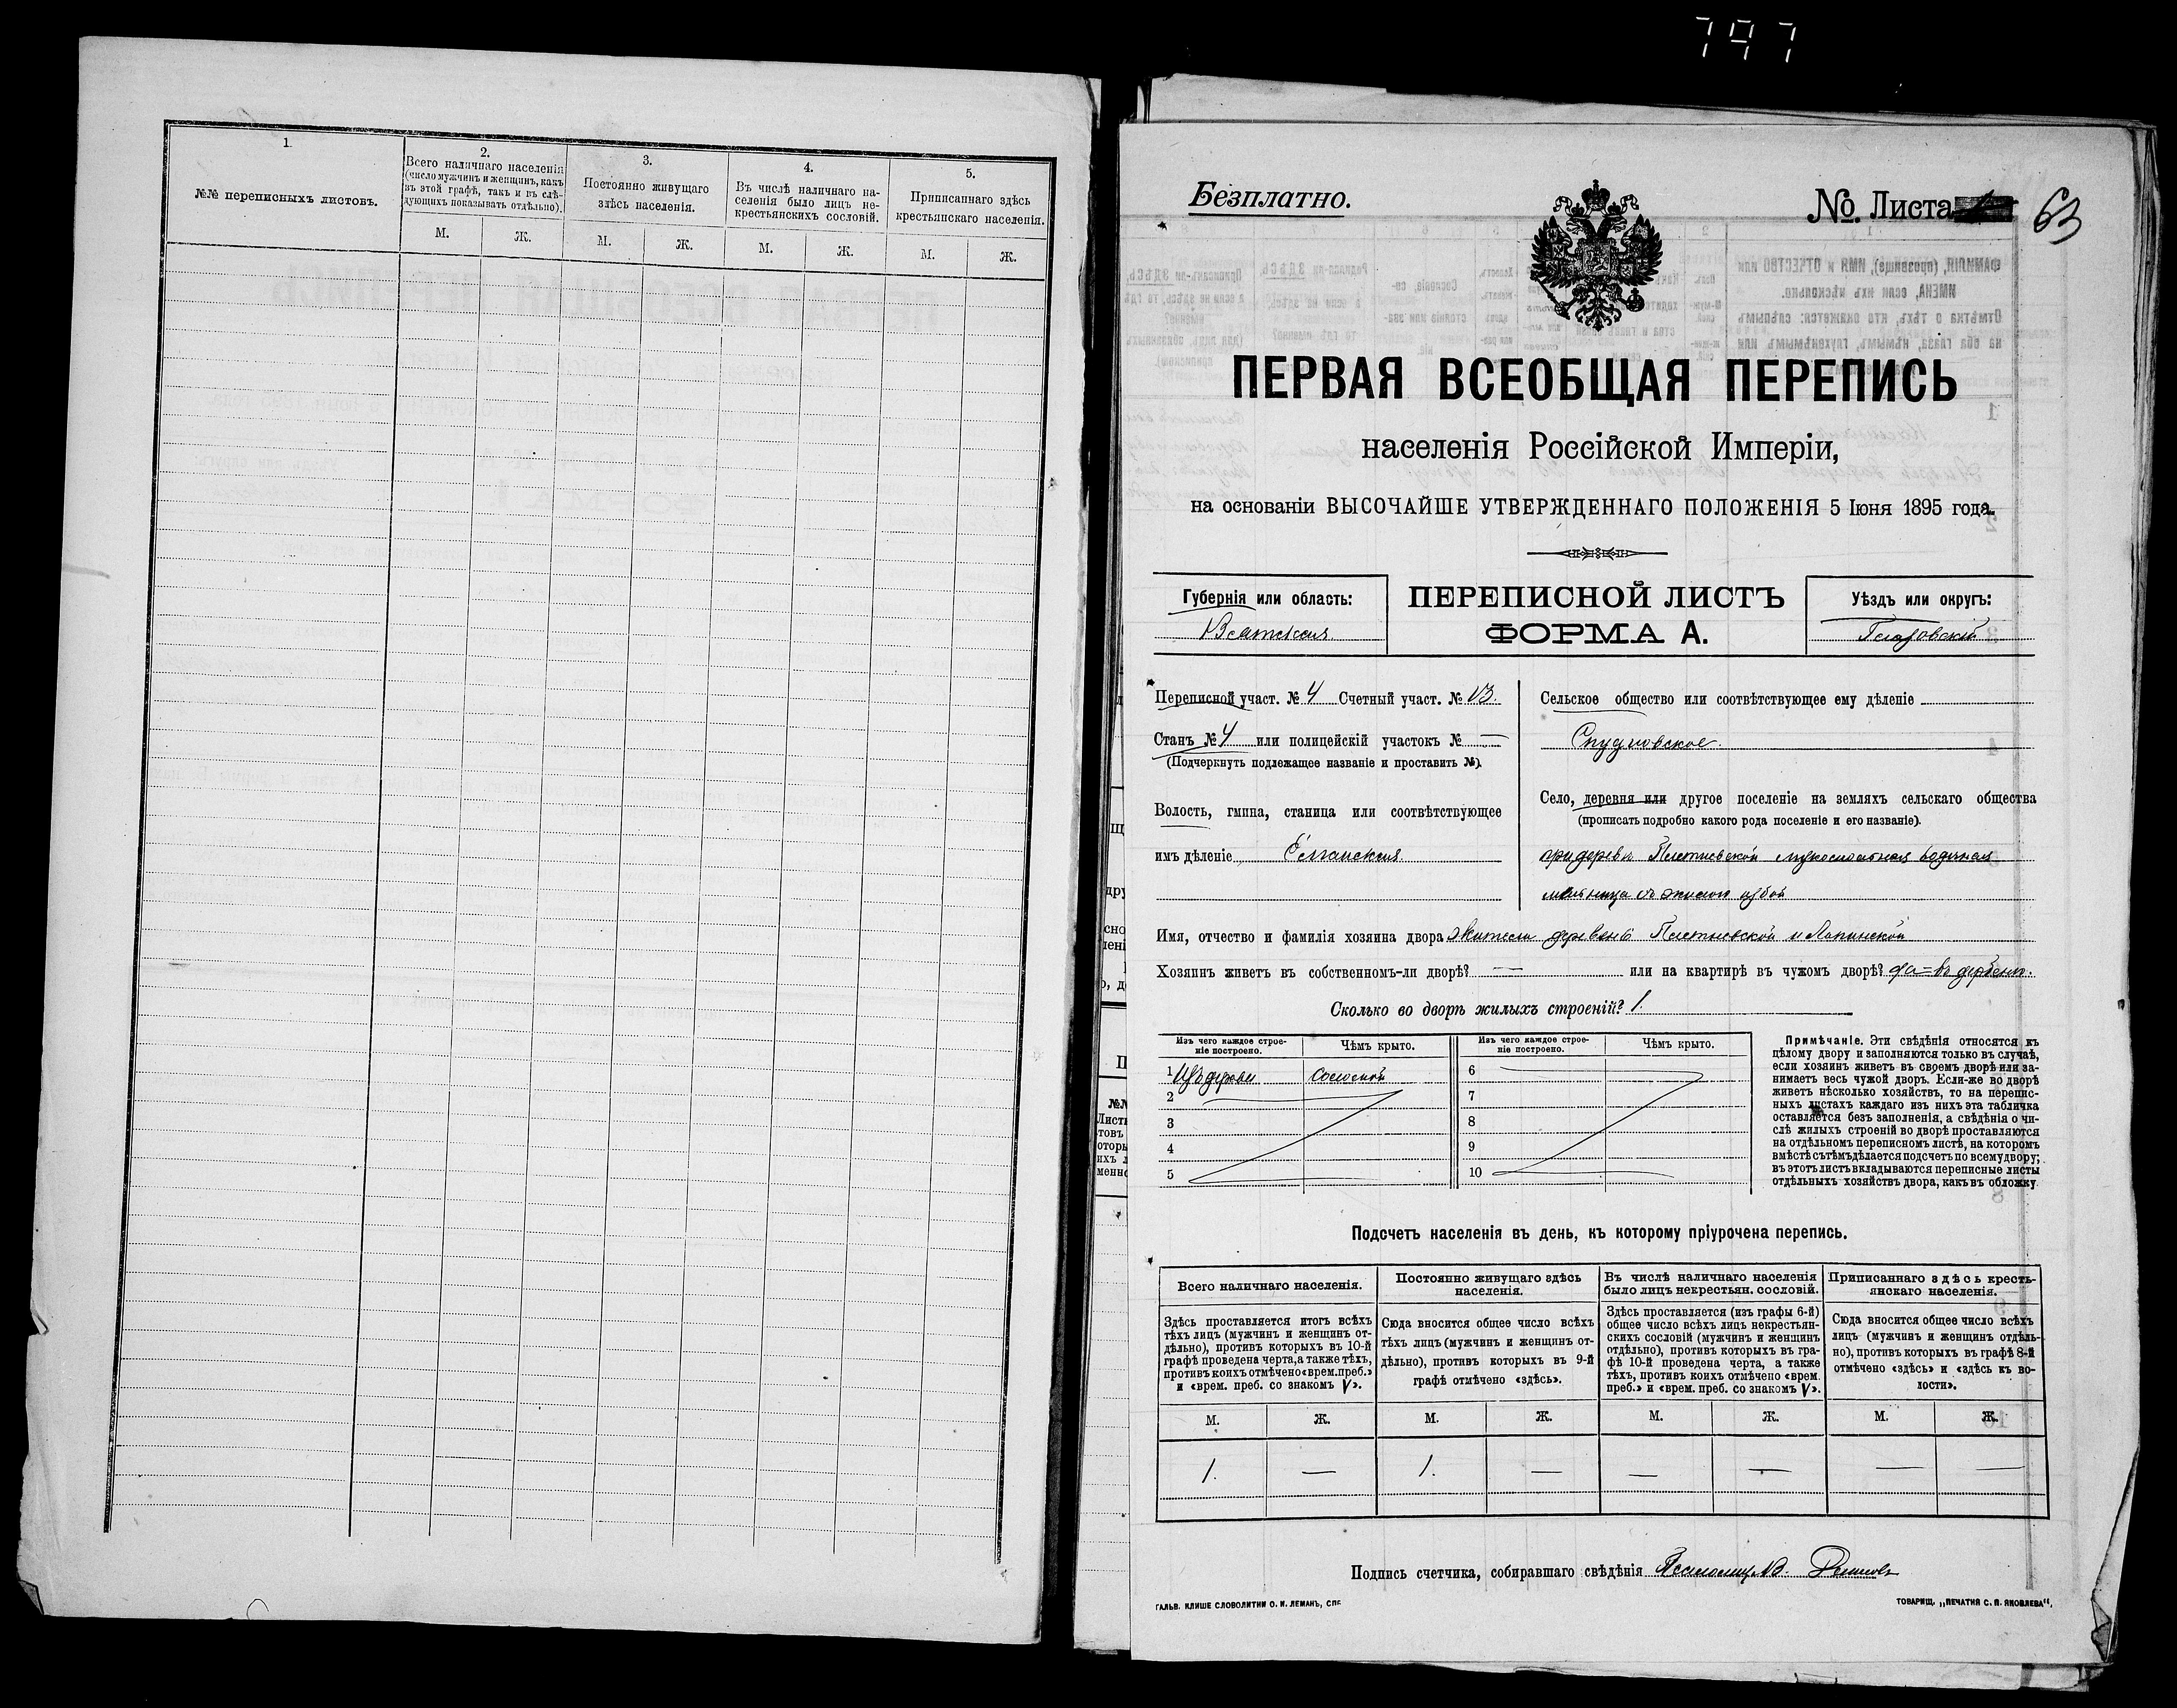 797
1.
№№ переписныхъ листовъ.
2.
Всего наличнаго населенія
(число мужчинъ и женщинъ, какъ
въ этой графѣ, такъ и въ слѣ-
дующихъ показывать отдѣльно).
3.
Постоянно живущаго
здѣсь населенія.
4.
Въ числѣ наличнаго на-
селенія было лицъ не-
крестьянскихъ сословій.
5.
Приписаннаго здѣсь
крестьянскаго населенія.
М. Ж. М. Ж. М. Ж. М. Ж.
Безплатно.
№ Листа 63
ПЕРВАЯ ВСЕОБЩАЯ ПЕРЕПИСЬ
населенія Россійской Имперіи,
на основаніи ВЫСОЧАЙШЕ УТВЕРЖДЕННАГО ПОЛОЖЕНІЯ 5 Іюня 1895 года.
Губернія или область:
Вятская
ПЕРЕПИСНОЙ ЛИСТЪ
ФОРМА А.
Уѣздъ или округъ:
Глазовскій
Переписной участ. № 4 Счетный участ. № 13.
Станъ № 4 или полицейскій участокъ № —
(Подчеркнуть подлежащее названіе и проставить №).
Волость, гмина, станица или соотвѣтствующее
имъ дѣленіе Елганская
Сельское общество или соотвѣтствующее ему дѣленіе
Село, деревня или другое поселеніе на земляхъ сельскаго общества
(прописать подробно какого рода поселеніе и его названіе).
при деревнѣ Плетневской мукомольная водяная
мельница съ жилой избой
Имя, отчество и фамилія хозяина двора Жители деревень Плетневской и Лапинской
Хозяинъ живетъ въ собственномъ-ли дворѣ? — или на квартирѣ въ чужомъ дворѣ? да
Сколько во дворѣ жилыхъ строеній? 1.
Изъ чего каждое строе-
ніе построено.
Чѣмъ крыто.
Изъ чего каждое строе-
ніе построено.
Чѣмъ крыто.
1 Изъ дерева соломой
2
3
4
5
6
7
8
9
10
Примѣчаніе. Эти свѣдѣнія относятся къ
цѣлому двору и заполняются только въ случаѣ,
если хозяинъ живетъ въ своемъ дворѣ или за-
нимаетъ весь чужой дворъ. Если-же во дворѣ
живетъ нѣсколько хозяйствъ, то на перепис-
ныхъ листахъ каждаго изъ нихъ эта табличка
оставляется безъ заполненія, а свѣдѣнія о чи-
слѣ жилыхъ строеній во дворѣ проставляются
на отдѣльномъ переписномъ листѣ, на которомъ
вмѣстѣ съ тѣмъ дѣлается подсчетъ по всему двору;
въ этотъ листъ вкладываются переписные листы
отдѣльныхъ хозяйствъ двора, какъ въ обложку.
Подсчетъ населенія въ день, къ которому пріурочена перепись.
Всего наличнаго населенія.
Здѣсь проставляется итогъ всѣхъ
тѣхъ лицъ (мужчинъ и женщинъ от-
дѣльно), противъ которыхъ въ 10-й
графѣ проведена черта, а также тѣхъ,
противъ коихъ отмѣчено «врем. преб.»
и «врем. преб. со знакомъ V».
Постоянно живущаго здѣсь
населенія.
Сюда вносится общее число всѣхъ
тѣхъ лицъ (мужчинъ и женщинъ от-
дѣльно), противъ которыхъ въ 9-й
графѣ отмѣчено «здѣсь».
Въ числѣ наличнаго населенія
было лицъ некрестьян. сословій.
Здѣсь проставляется (изъ графы 6-й)
общее число всѣхъ лицъ некрестьян-
скихъ сословій (мужчинъ и женщинъ
отдѣльно), противъ которыхъ въ гра-
фѣ 10-й проведена черта, а также
тѣхъ, противъ коихъ отмѣчено «врем.
преб.» и «врем. преб. со знакомъ V».
Приписаннаго здѣсь кресть-
янскаго населенія.
Сюда вносится общее число всѣхъ
лицъ (мужчинъ и женщинъ отдѣль-
но), противъ которыхъ въ графѣ 8-й
отмѣчено «здѣсь» и «здѣсь къ во-
лости».
М. Ж. М. Ж. М. Ж. М. Ж.
1. — 1. — — — — —
Подпись счетчика, собиравшаго свѣдѣнія
ГАЛЬВ. КЛИШЕ СЛОВОЛИТНИ О. И. ЛЕМАНЪ, СПБ
ТОВАРИЩ. „ПЕЧАТНЯ С. П. ЯКОВЛЕВА“.